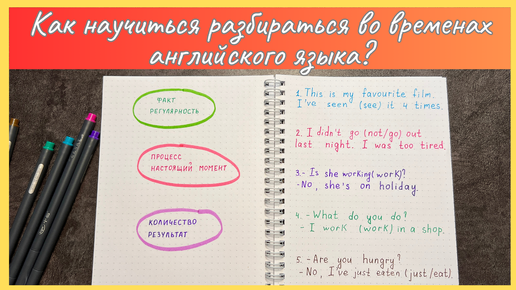 Как научиться разбираться во временах
английского языка?
ФАКТ
РЕГУЛЯРНОСТЬ
ПРОЦЕСС
НАСТОЯЩИЙ МОМЕНТ
КОЛИЧЕСТВО
РЕЗУЛЬТАТ
1. This is my favourite film.
I've seen (see) it 4 times.
2. I didn't go (not/go) out
last night. I was too tired.
3.- Is she working (work)?
-No, she's on holiday.
4.- What do you do?
- I work (work) in a shop.
5. - Are you hungry?
- No, I've just eaten (just/eat).